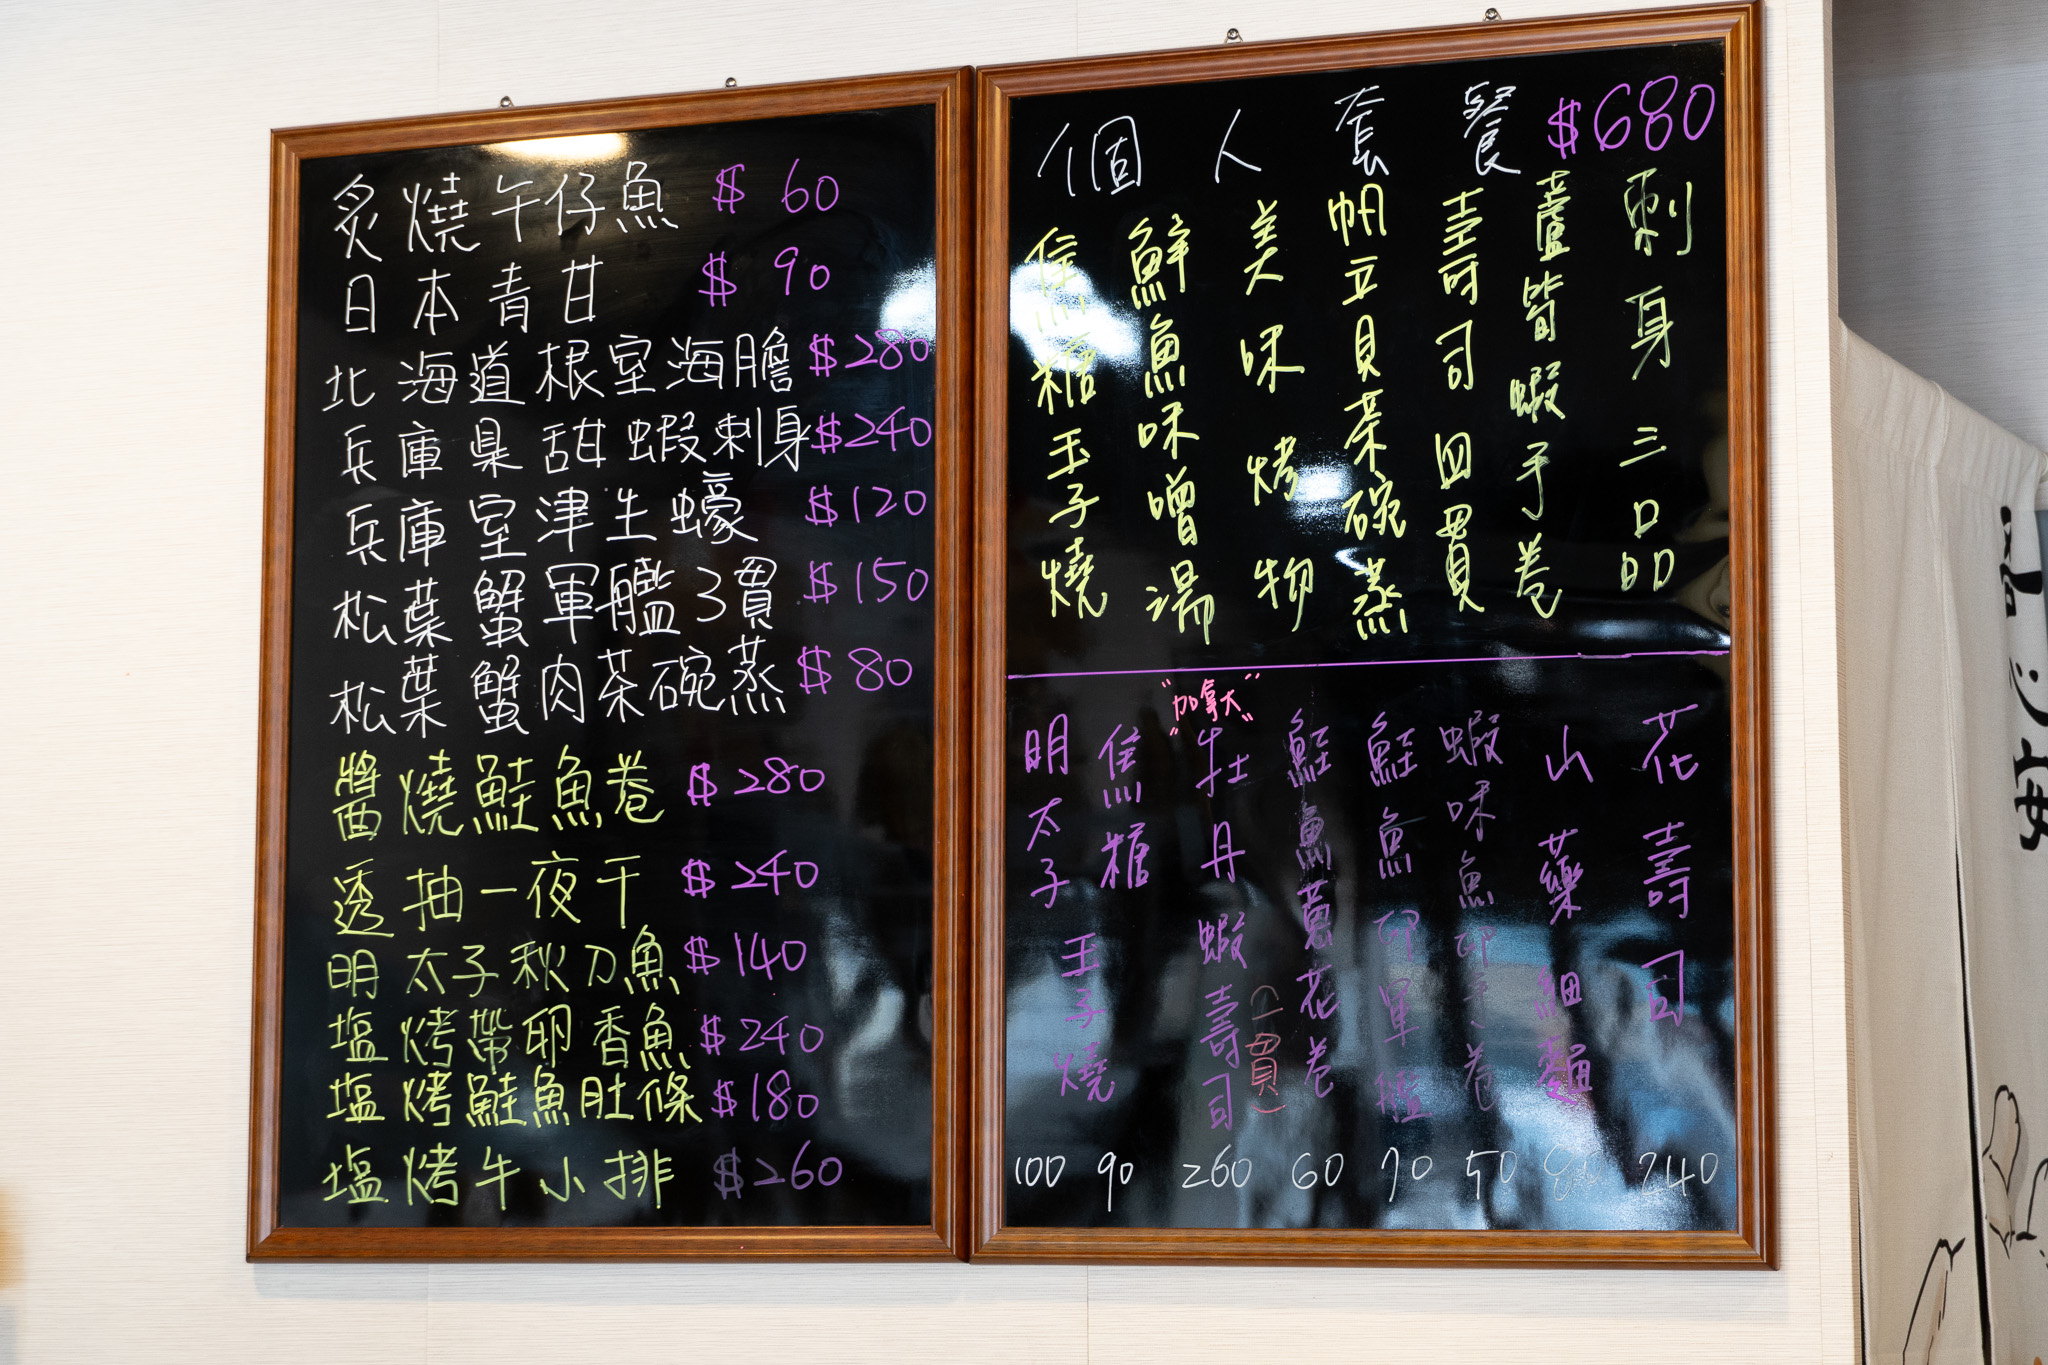 炙燒午仔魚 $ 60
日本青甘 $ 90
北海道根室海膽 $280
兵庫県甜蝦刺身 $240
兵庫室津生蠔 $120
松葉蟹軍艦3貫 $150
松葉蟹肉茶碗蒸 $ 80
醬燒鮭魚卷 $ 280
透抽一夜干 $ 240
明太子秋刀魚 $ 140
塩烤帶卵香魚 $ 240
塩烤鮭魚肚條 $180
塩烤牛小排 $260
個人套餐 $680
刺身三品
蘆筍蝦手卷
壽司四貫
帆立貝茶碗蒸
美味烤物
鮮魚味噌湯
焦糖玉子燒
花壽司 240
山藥細麵
蝦味魚卵手卷 50
鮭魚卵軍艦 70
鮭魚蔥花卷 60
"加拿大"
牡丹蝦壽司(一貫) 260
焦糖玉子燒 90
明太子玉子燒 100